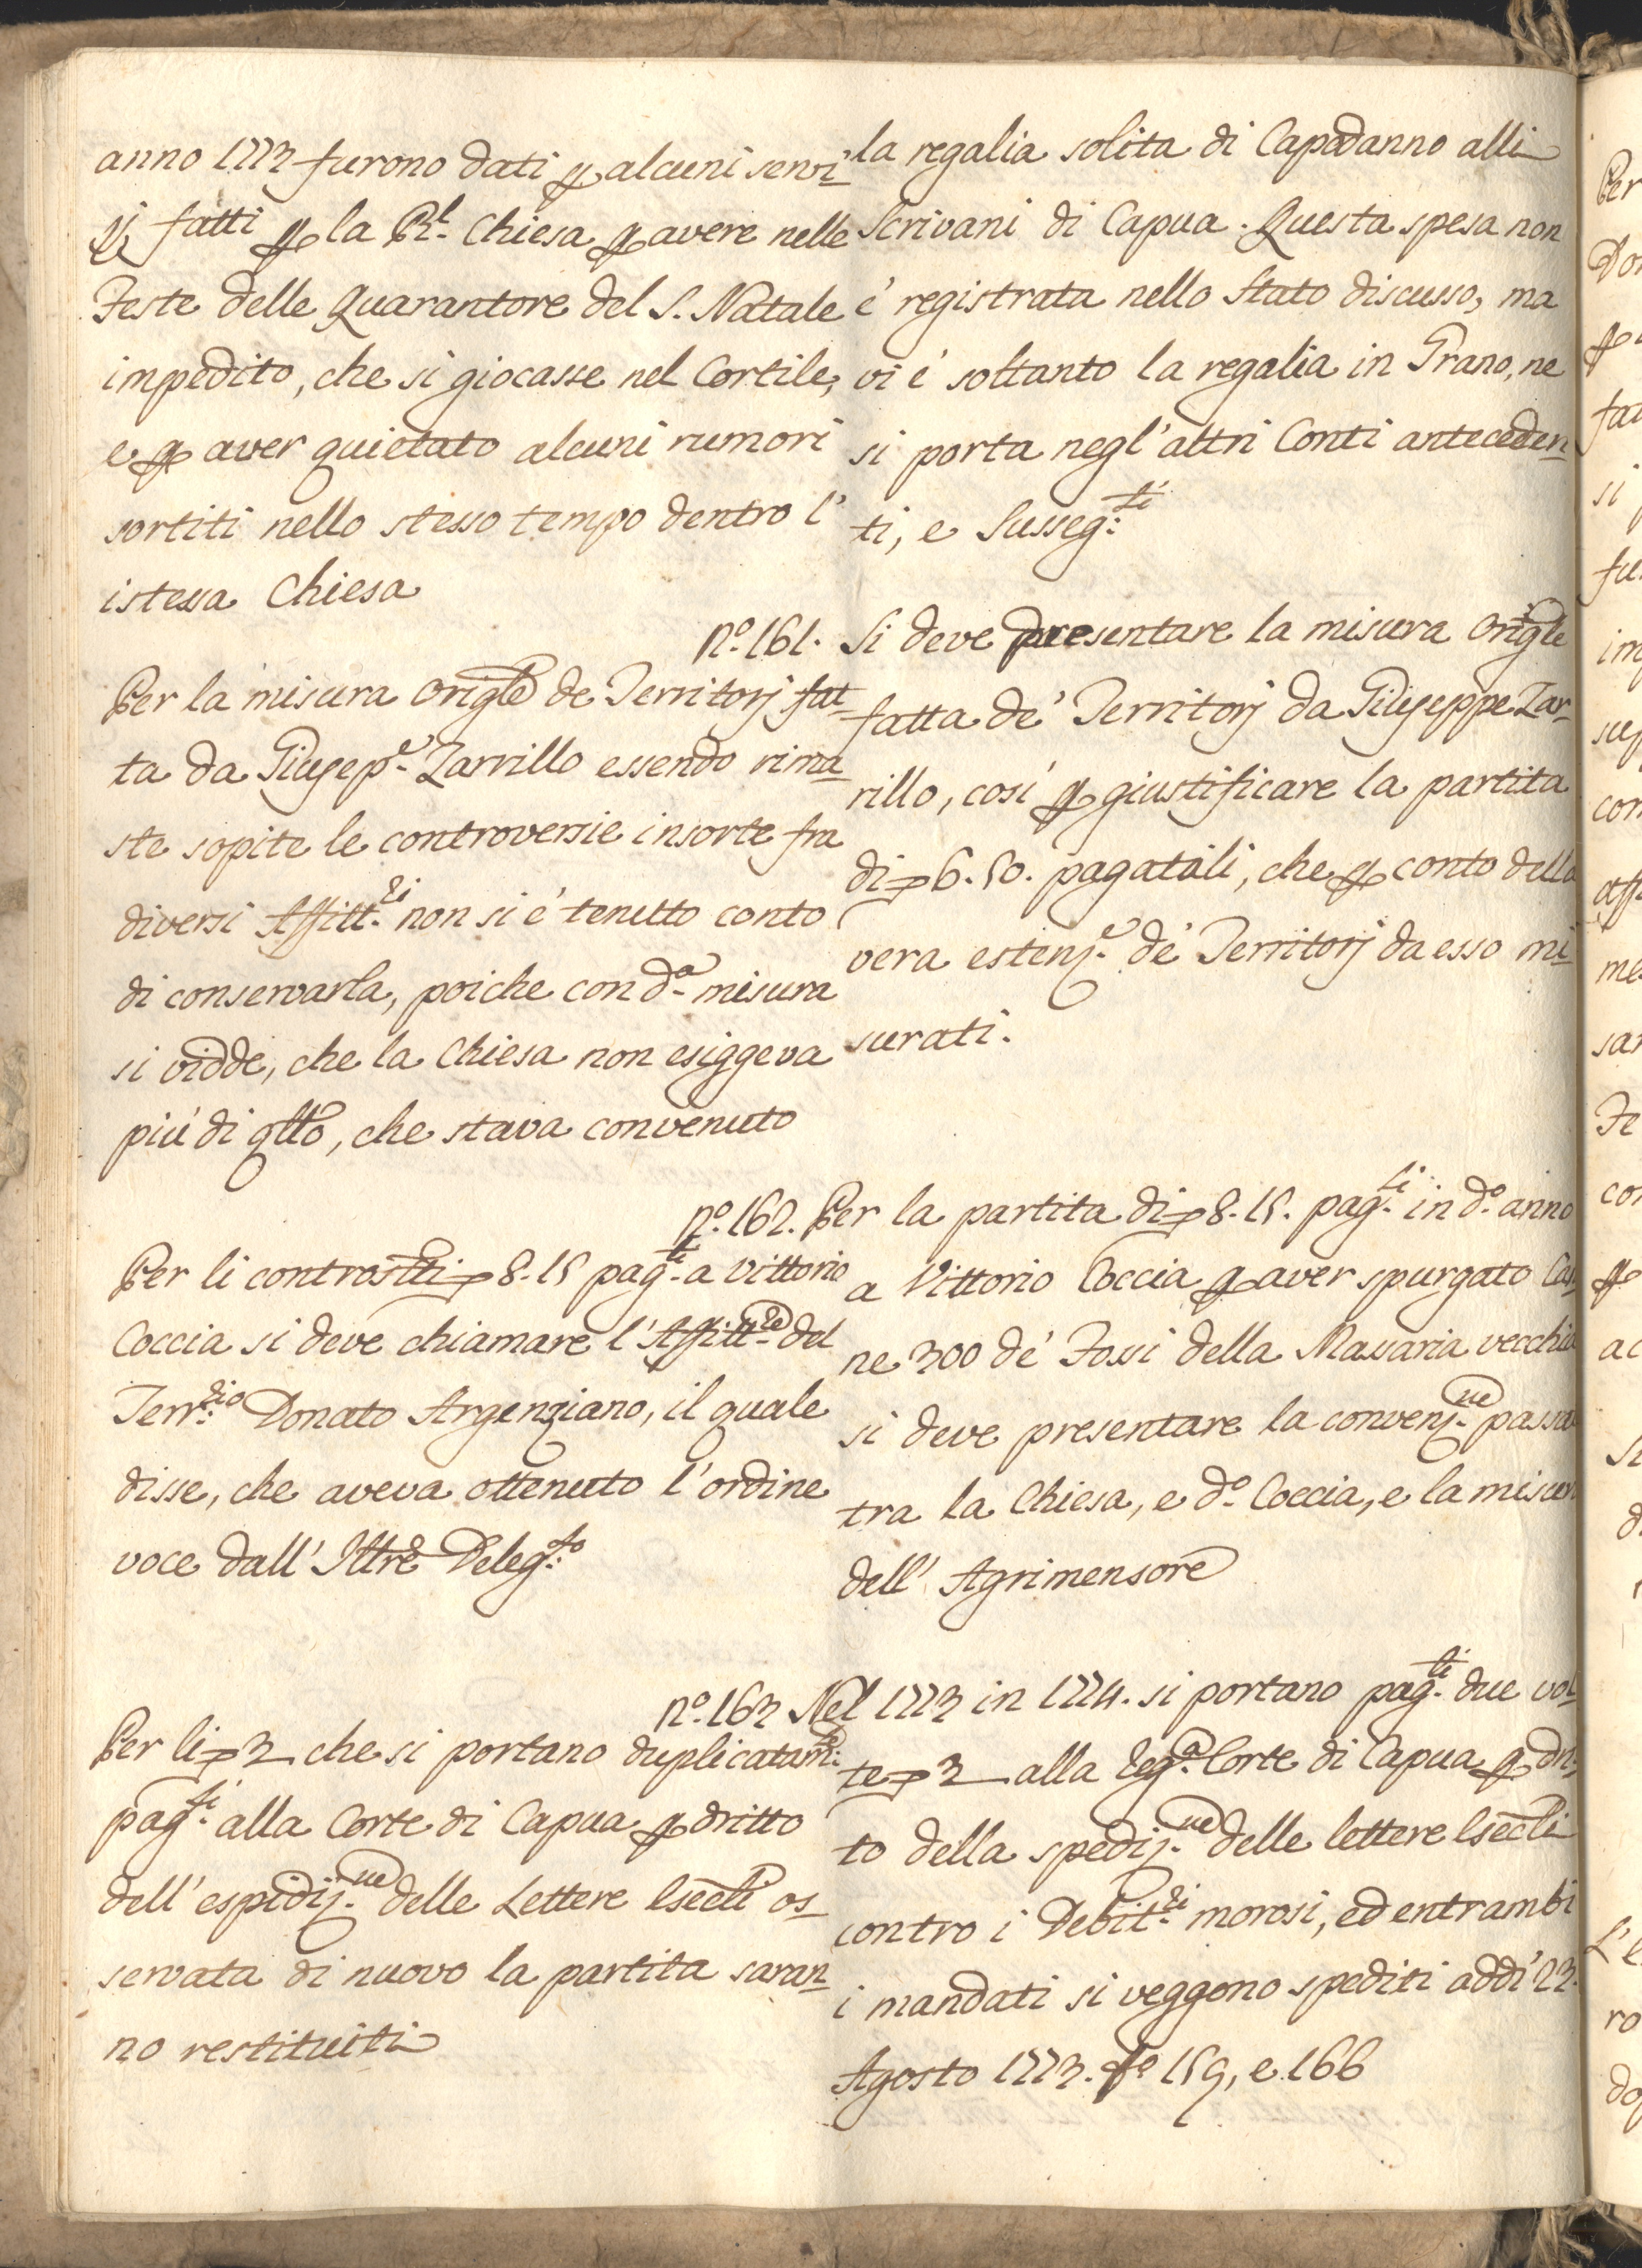 anno 1773 furono dati p alcuni servi-
zj fatti p la Rl. Chiesa p avere nelle
Feste delle Quarantore del S. Natale
impedito, che si giocasse nel Cortile,
e p aver quietato alcuni rumori
sortiti nello stesso tempo dentro l'
istessa Chiesa
Per la misura origle de Territorj fat-
ta da Giusep.e Zarrillo essendo rima-
ste sopite le controversie insorte fra
diversi Affitt.ri non si è tenuto conto
di conservarla, poiche con d.a misura
si vidde, che la Chiesa non esiggeva
più di qllo, che stava convenuto
Per li controsti 8-15 pag.ti a Vittorio
Coccia si deve chiamare l'Affitt.re del
Terr.rio Donato Argenziano, il quale
disse, che aveva ottenuto l'ordine
voce dall' Illre Deleg.to
Per li 3 che si portano duplicatam.te
pag.ti alla Corte di Capua p dritto
dell' espediz.ne delle Lettere Esecli os-
servata di nuovo la partita saran-
no restituiti
la regalia solita di Capodanno alli
Scrivani di Capua. Questa spesa non
è registrata nello Stato discusso, ma
vi è soltanto la regalia in Grano, ne
si porta negl'altri Conti anteceden-
ti, e susseg.ti
n.o 161. Si deve presentare la misura origle
fatta de' Territorj da Giuseppe Zar-
rillo, così p giustificare la partita
di 6.50. pagatili, che p conto della
vera estenz.e de' Territorj da esso mi-
surati.
n.o 162. Per la partita di 8-15. pag.ti in d.o anno
a Vittorio Coccia p aver spurgato Can-
ne 300 de' Fossi della Massaria vecchia
si deve presentare la convenz.ne passa
tra la Chiesa, e d.o Coccia, e la misur
dell' Agrimensore
n.o 163 Nel 1773 in 1774. si portano pag.ti due vol-
te 3 alla Reg.a Corte di Capua p drit-
to della spediz.ne delle lettere Esecli
contro i Debit.ri morosi, ed entrambi
i mandati si veggono spediti addì 23.
Agosto 1773. fo 159, e 166